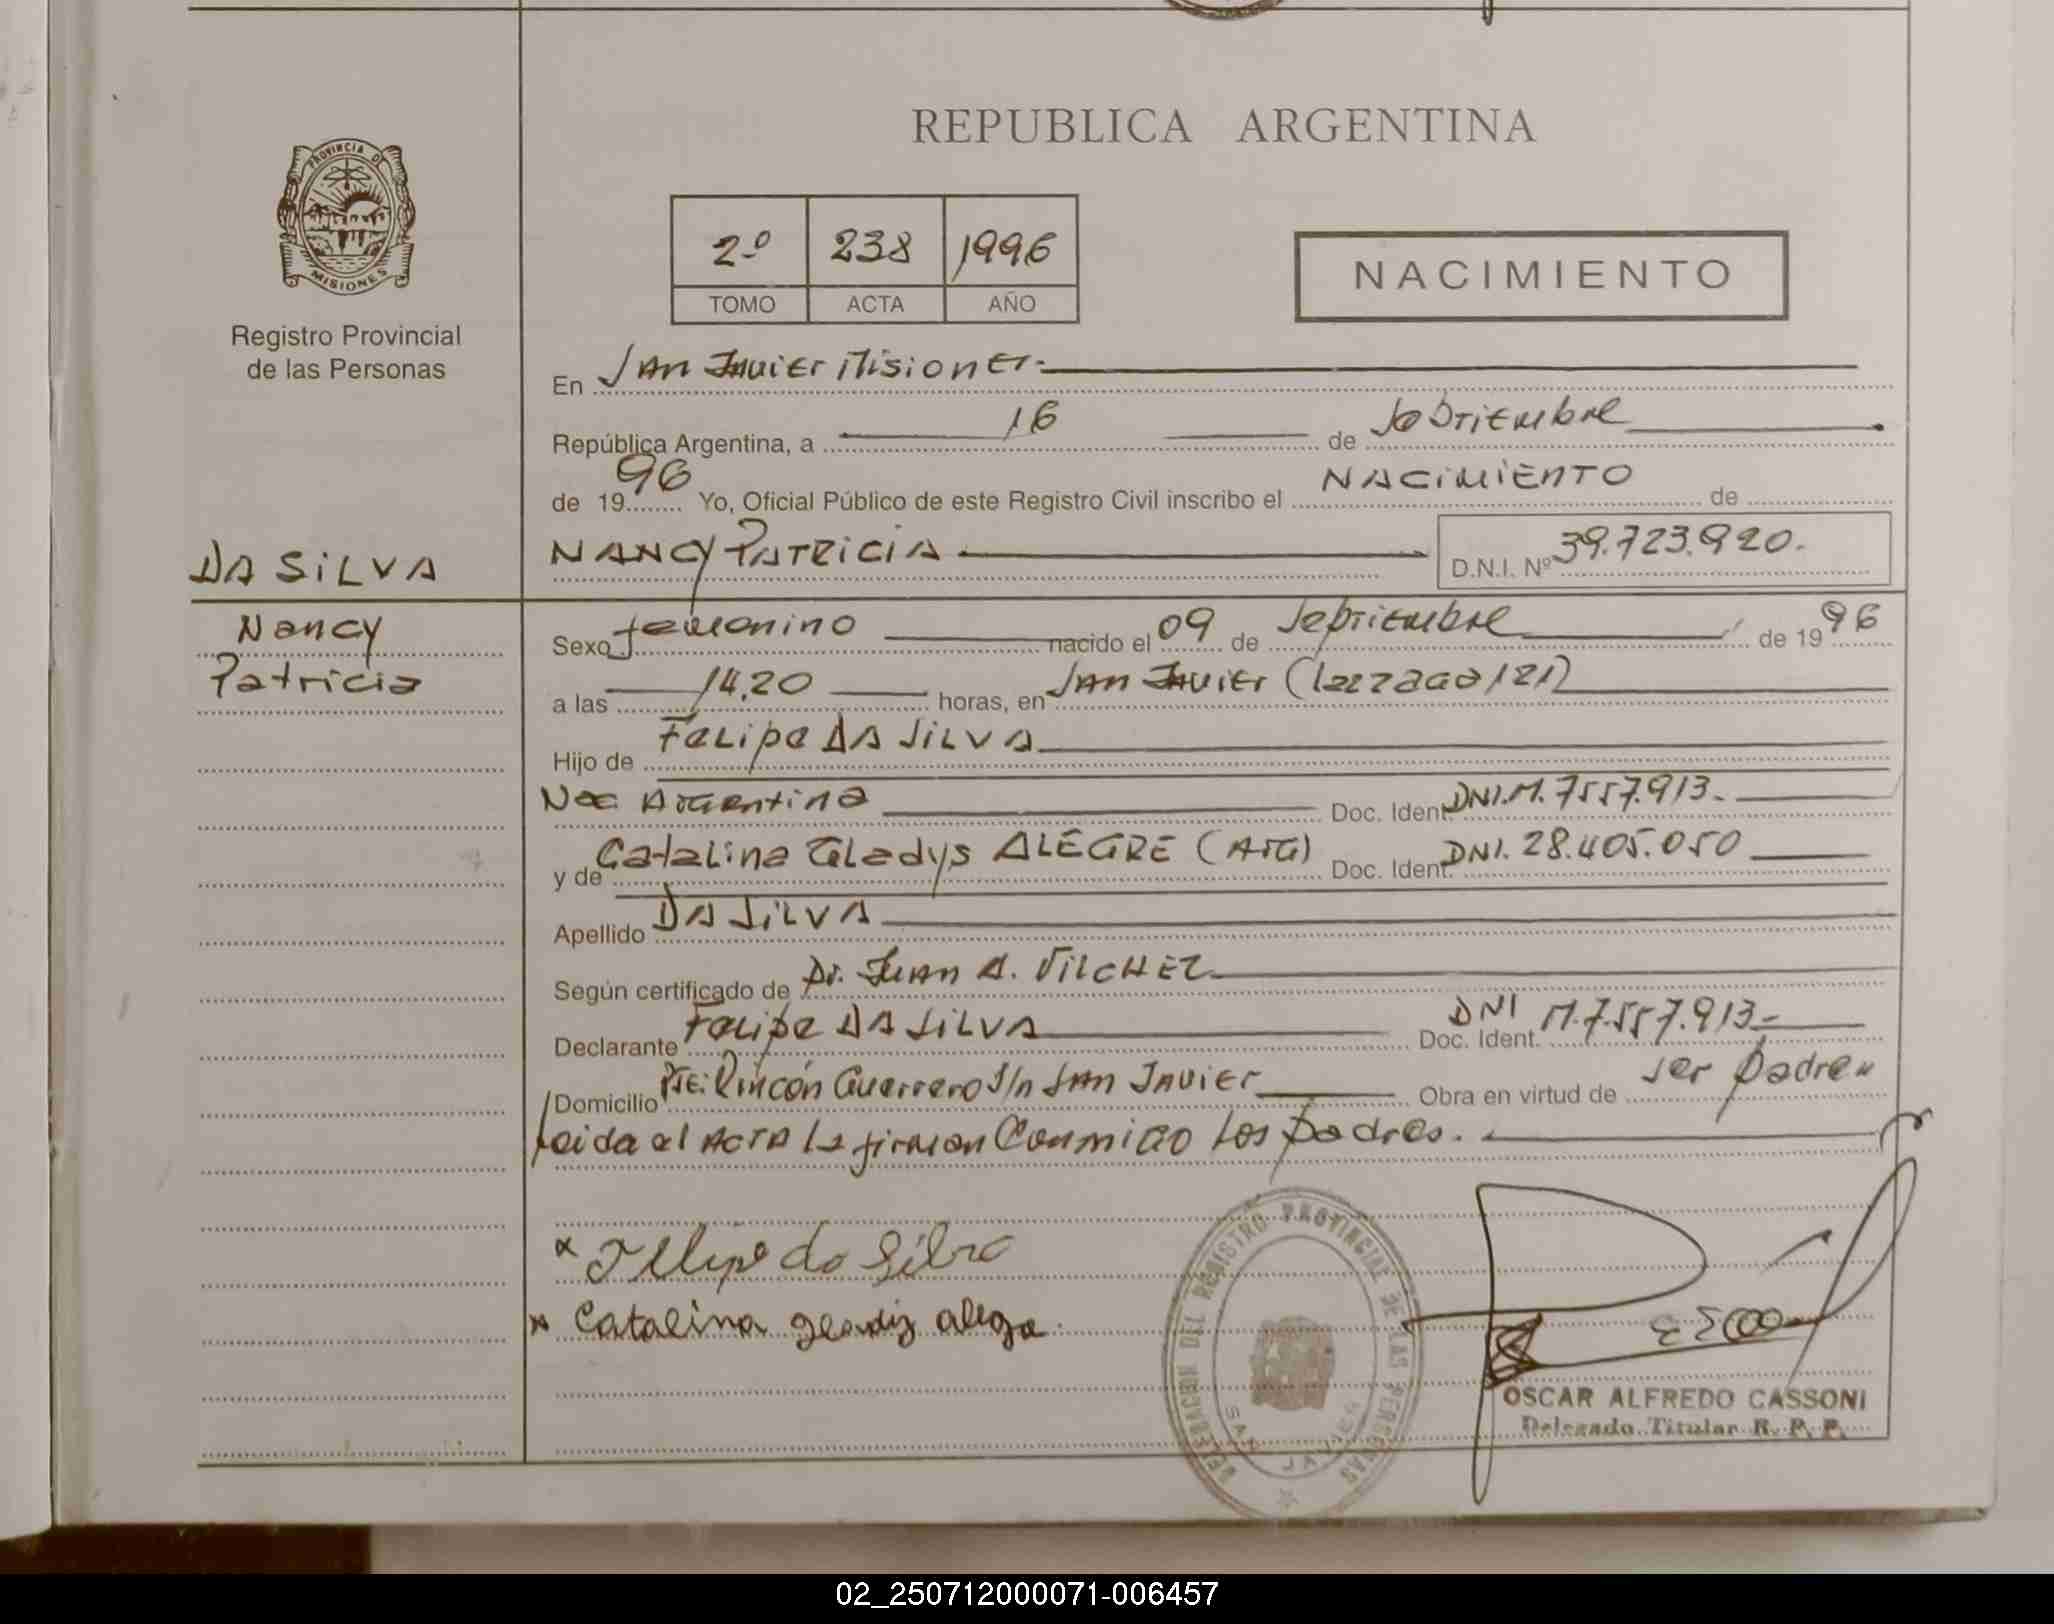 REPUBLICA ARGENTINA
PROVINCIA DE
MISIONES
Registro Provincial
de las Personas
2º 238 1996
TOMO ACTA AÑO
NACIMIENTO
En San Javier Misiones.
República Argentina, a 16 de Septiembre
de 1996 Yo, Oficial Público de este Registro Civil inscribo el NACIMIENTO de
NANCY PATRICIA D.N.I. Nº 39.723.920.
DA SILVA
Nancy
Patricia
Sexo femenino nacido el 09 de Septiembre de 1996
a las 14,20 horas, en San Javier (
Hijo de Felipe DA SILVA
Nac Argentina Doc. Ident. DNI.M. 7557.913.-
y de Catalina Gladys ALEGRE (Arg) Doc. Ident. DNI. 28.405.050
Apellido DA SILVA
Según certificado de Dr. Juan A. VILCHEZ
Declarante Felipe DA SILVA Doc. Ident. DNI M.7.557.913-
Domicilio Pje: Rincón Guerrero S/n San Javier Obra en virtud de ser padre
Leida el ACTA la firman Conmigo los padres.
x Felipe da Silva
x Catalina gladiz alegre
DELEGACION DEL REGISTRO PROVINCIAL DE LAS PERSONAS
SAN JAVIER
OSCAR ALFREDO CASSONI
Delegado Titular R. P. P.
02_250712000071-006457